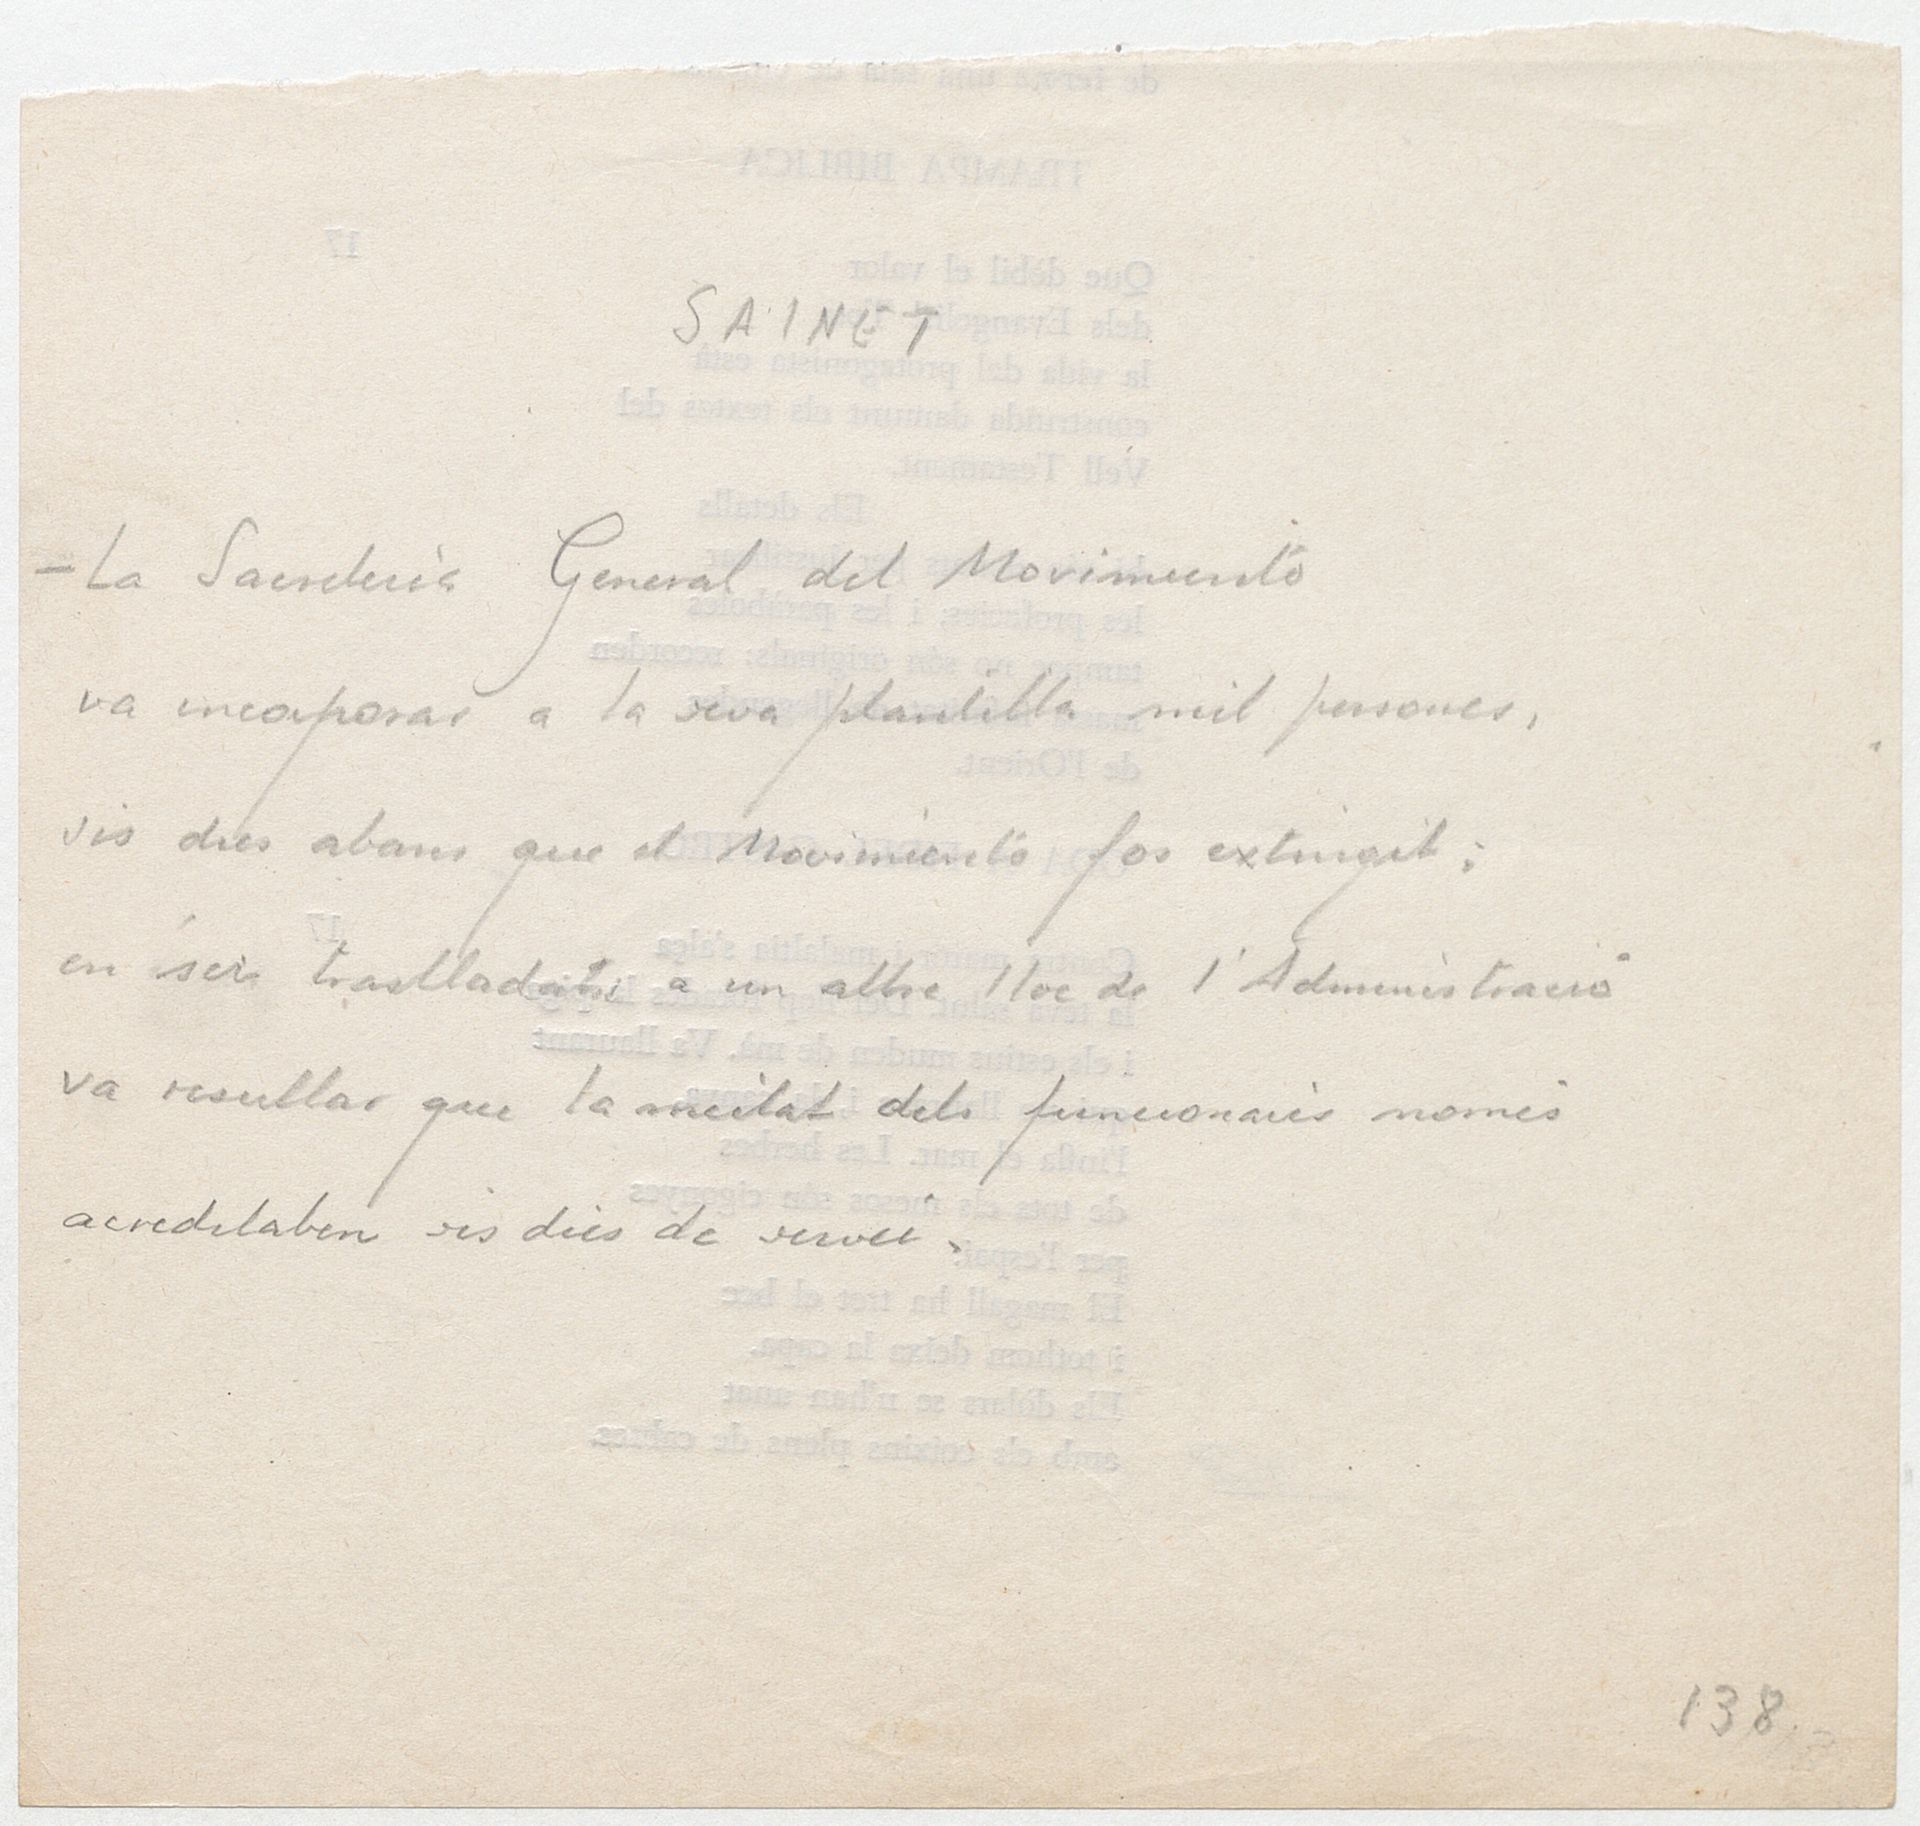 SAINET
- La Secretería General del Movimiento
va incorporar a la seva plantilla mil persones,
sis dies abans que el Movimiento fos extingit;
en ser traslladats a un altre lloc de l'Administració
va resultar que la meitat dels funcionaris només
acreditaben sis dies de servei.
138